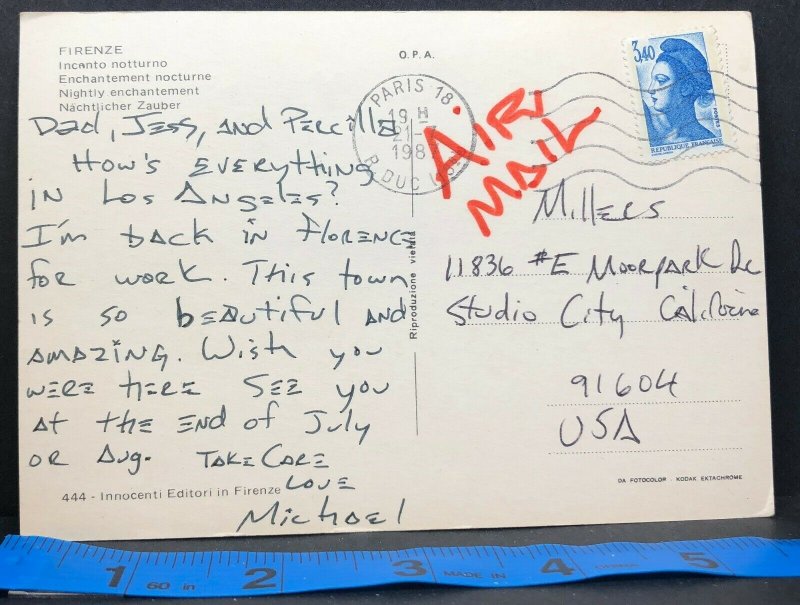 FIRENZE
Incanto notturno
Enchantement nocturne
Nightly enchantement
Nächtlicher Zauber
O.P.A.
PARIS 18
19 H
21-
198
R. DUC
3,40
REPUBLIQUE FRANÇAISE
AIR
MAIL
Dad, Jess, and Percilla
How's EVERYthing
in Los Angeles?
I'm back in Florence
for work. This town
is so beautiful and
amazing. Wish you
were here See you
at the end of July
or Aug. Take Care
Love
Michael
444 - Innocenti Editori in Firenze
Riproduzione vietata
Millers
11836 #E Moorpark Dr
Studio City California
91604
USA
DA FOTOCOLOR - KODAK EKTACHROME
1 60 in 2 3 MADE IN 4 5